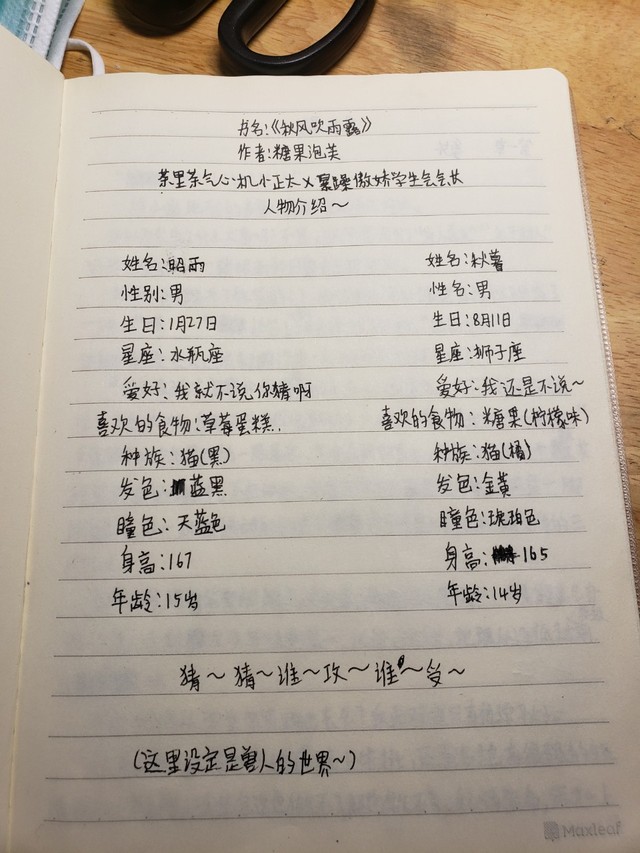 书名:《秋风吹雨露》
作者:糖果泡芙
茶里茶气心机小正太×暴躁傲娇学生会会长
人物介绍～
姓名:昭雨 姓名:秋暮
性别:男 性名:男
生日:1月27日 生日:8月11日
星座:水瓶座 星座:狮子座
爱好:我就不说,你猜啊 爱好:我还是不说～
喜欢的食物:草莓蛋糕. 喜欢的食物:糖果(柠檬味)
种族:猫(黑) 种族:猫(橘)
发色:蓝黑 发色:金黄
瞳色:天蓝色 瞳色:琥珀色
身高:167 身高:165
年龄:15岁 年龄:14岁
猜～猜～谁～攻～谁～受～
(这里设定是兽人的世界～)
Maxleaf